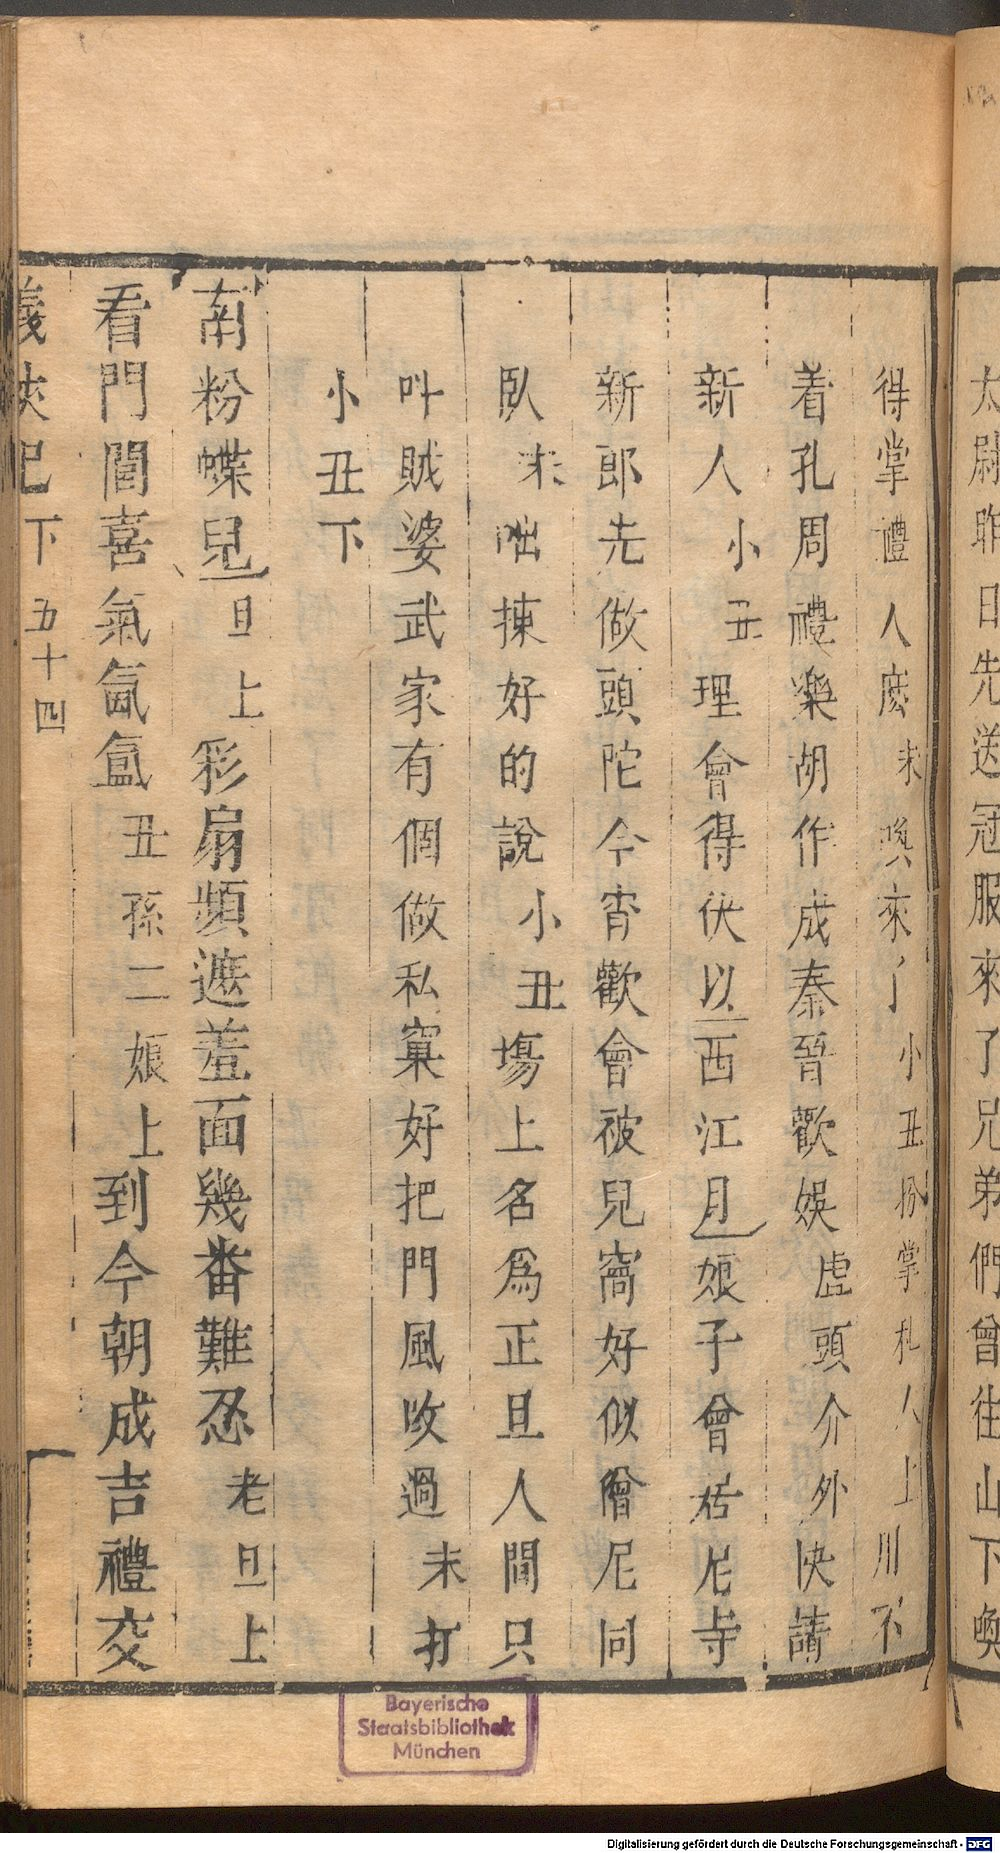 太尉昨日先送冠服來了兄弟們曾往山下喚
得掌禮人麽末喚來了小丑扮掌札人上川不
着孔周禮樂胡作成秦晉歡娛虛頭介外快請
新人小丑理會得伏以西江月娘子曾居尼寺
新郎先做頭陀今宵歡會被兒窩好似僧尼同
臥末咄揀好的說小丑塲上名爲正旦人間只
呌賊婆武家有個做私窠好把門風改過末打
小丑下
南粉蝶兒旦上彩扇頻遮羞面幾畨難忍老旦上
看門闌喜氣氤氳丑孫二娘上到今朝成吉禮交
義俠記下 五十四
Bayerische
Staatsbibliothek
München
Digitalisierung gefördert durch die Deutsche Forschungsgemeinschaft - DFG